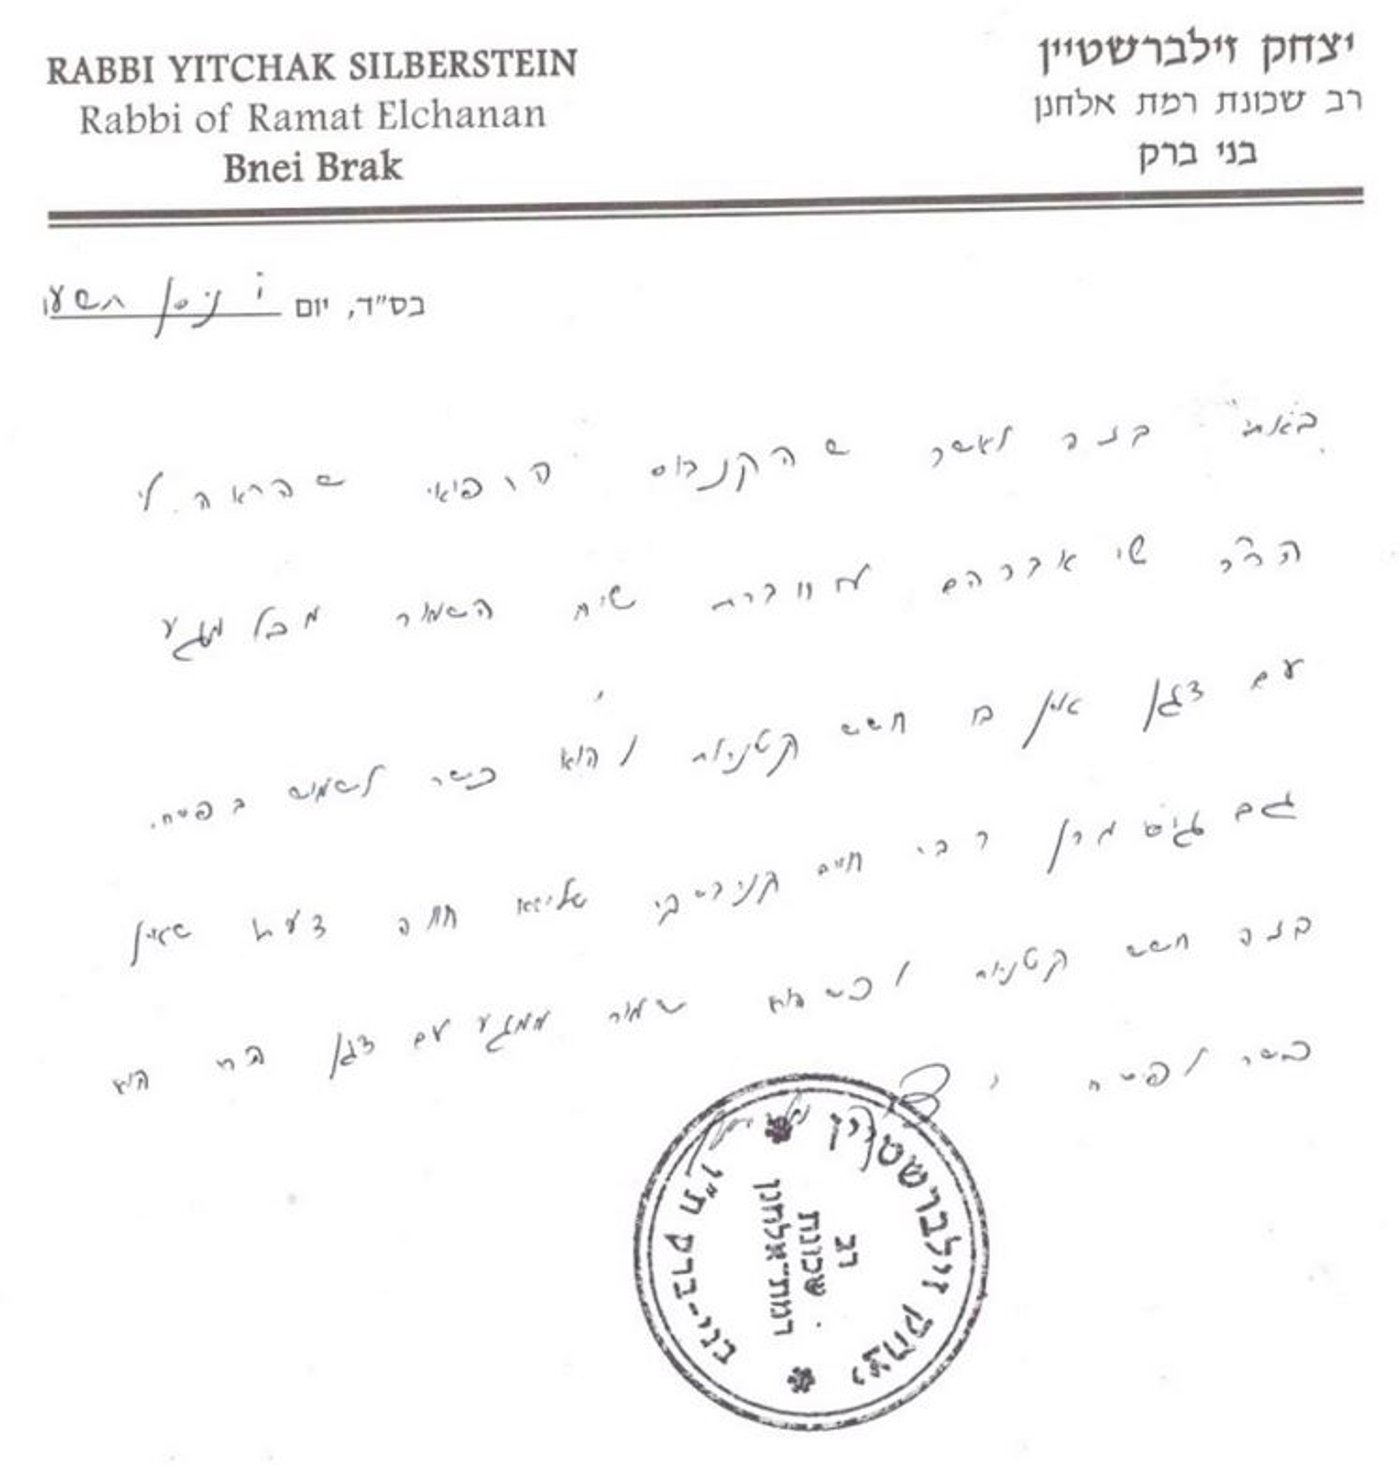 RABBI YITCHAK SILBERSTEIN
Rabbi of Ramat Elchanan
Bnei Brak
יצחק זילברשטיין
רב שכונת רמת אלחנן
בני ברק
בס"ד, יום י' ניסן תשעו
באתי בזה לאשר ש הקנבוס הרפואי שהראה לי
הרר שי אברהם מחוברת שיח השמור מכל מגע
עם דגן אין בו חשש קטניות והוא כשר לשמוש בפסח.
גם גיסי מרן רבי חיים קנייבסקי שליטא חוה דעתו שאין
בזה חשש קטניות וכשהוא שמור ממגע עם דגן הוא
כשר לפסח
יצחק זילברשטיין
רב
שכונת
רמת־אלחנן
בני-ברק ת"ו